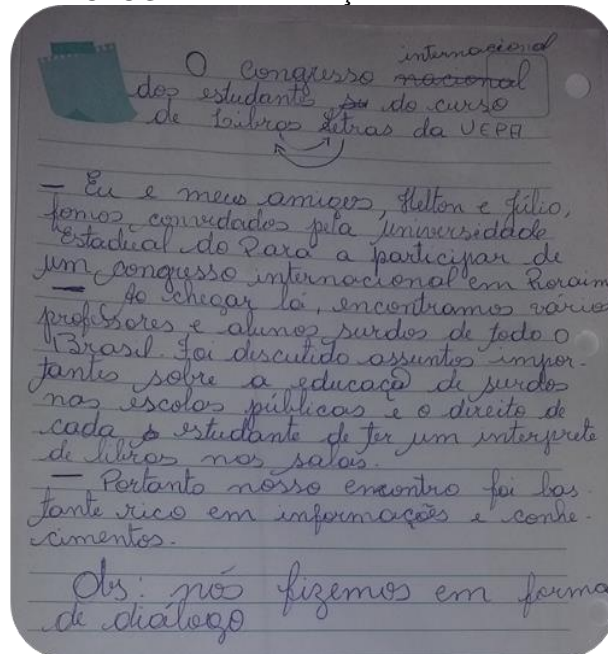 internacional
O Congresso nacional
dos estudante su do curso
de Libras Letras da UEPA
— Eu e meus amigos, Helton e Júlio,
fomos convidados pela universidade
Estadual do Pará a participar de
um congresso internacional em Roraim
— Ao chegar lá, encontramos vários
professores e alunos surdos de todo o
Brasil. Foi discutido assuntos impor-
tantes sobre a educaçã de surdos
nas escolas públicas e o direito de
cada estudante de ter um interprete
de libras nas salas.
— Portanto nosso encontro foi bas-
tante rico em informações e conhe-
cimentos.
Obs: nós fizemos em forma
de dialogo